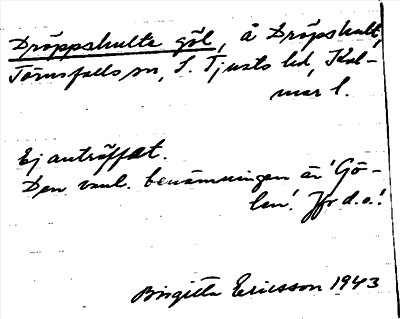 Dröppshults göl, å Dröpshult,
Törnsfalls sn, S. Tjusts hd, Kal-
mar l.
Ej anträffat.
Den vanl. benämningen är 'Gö-
len'. Jfr d.o.!
Birgitta Ericsson 1943